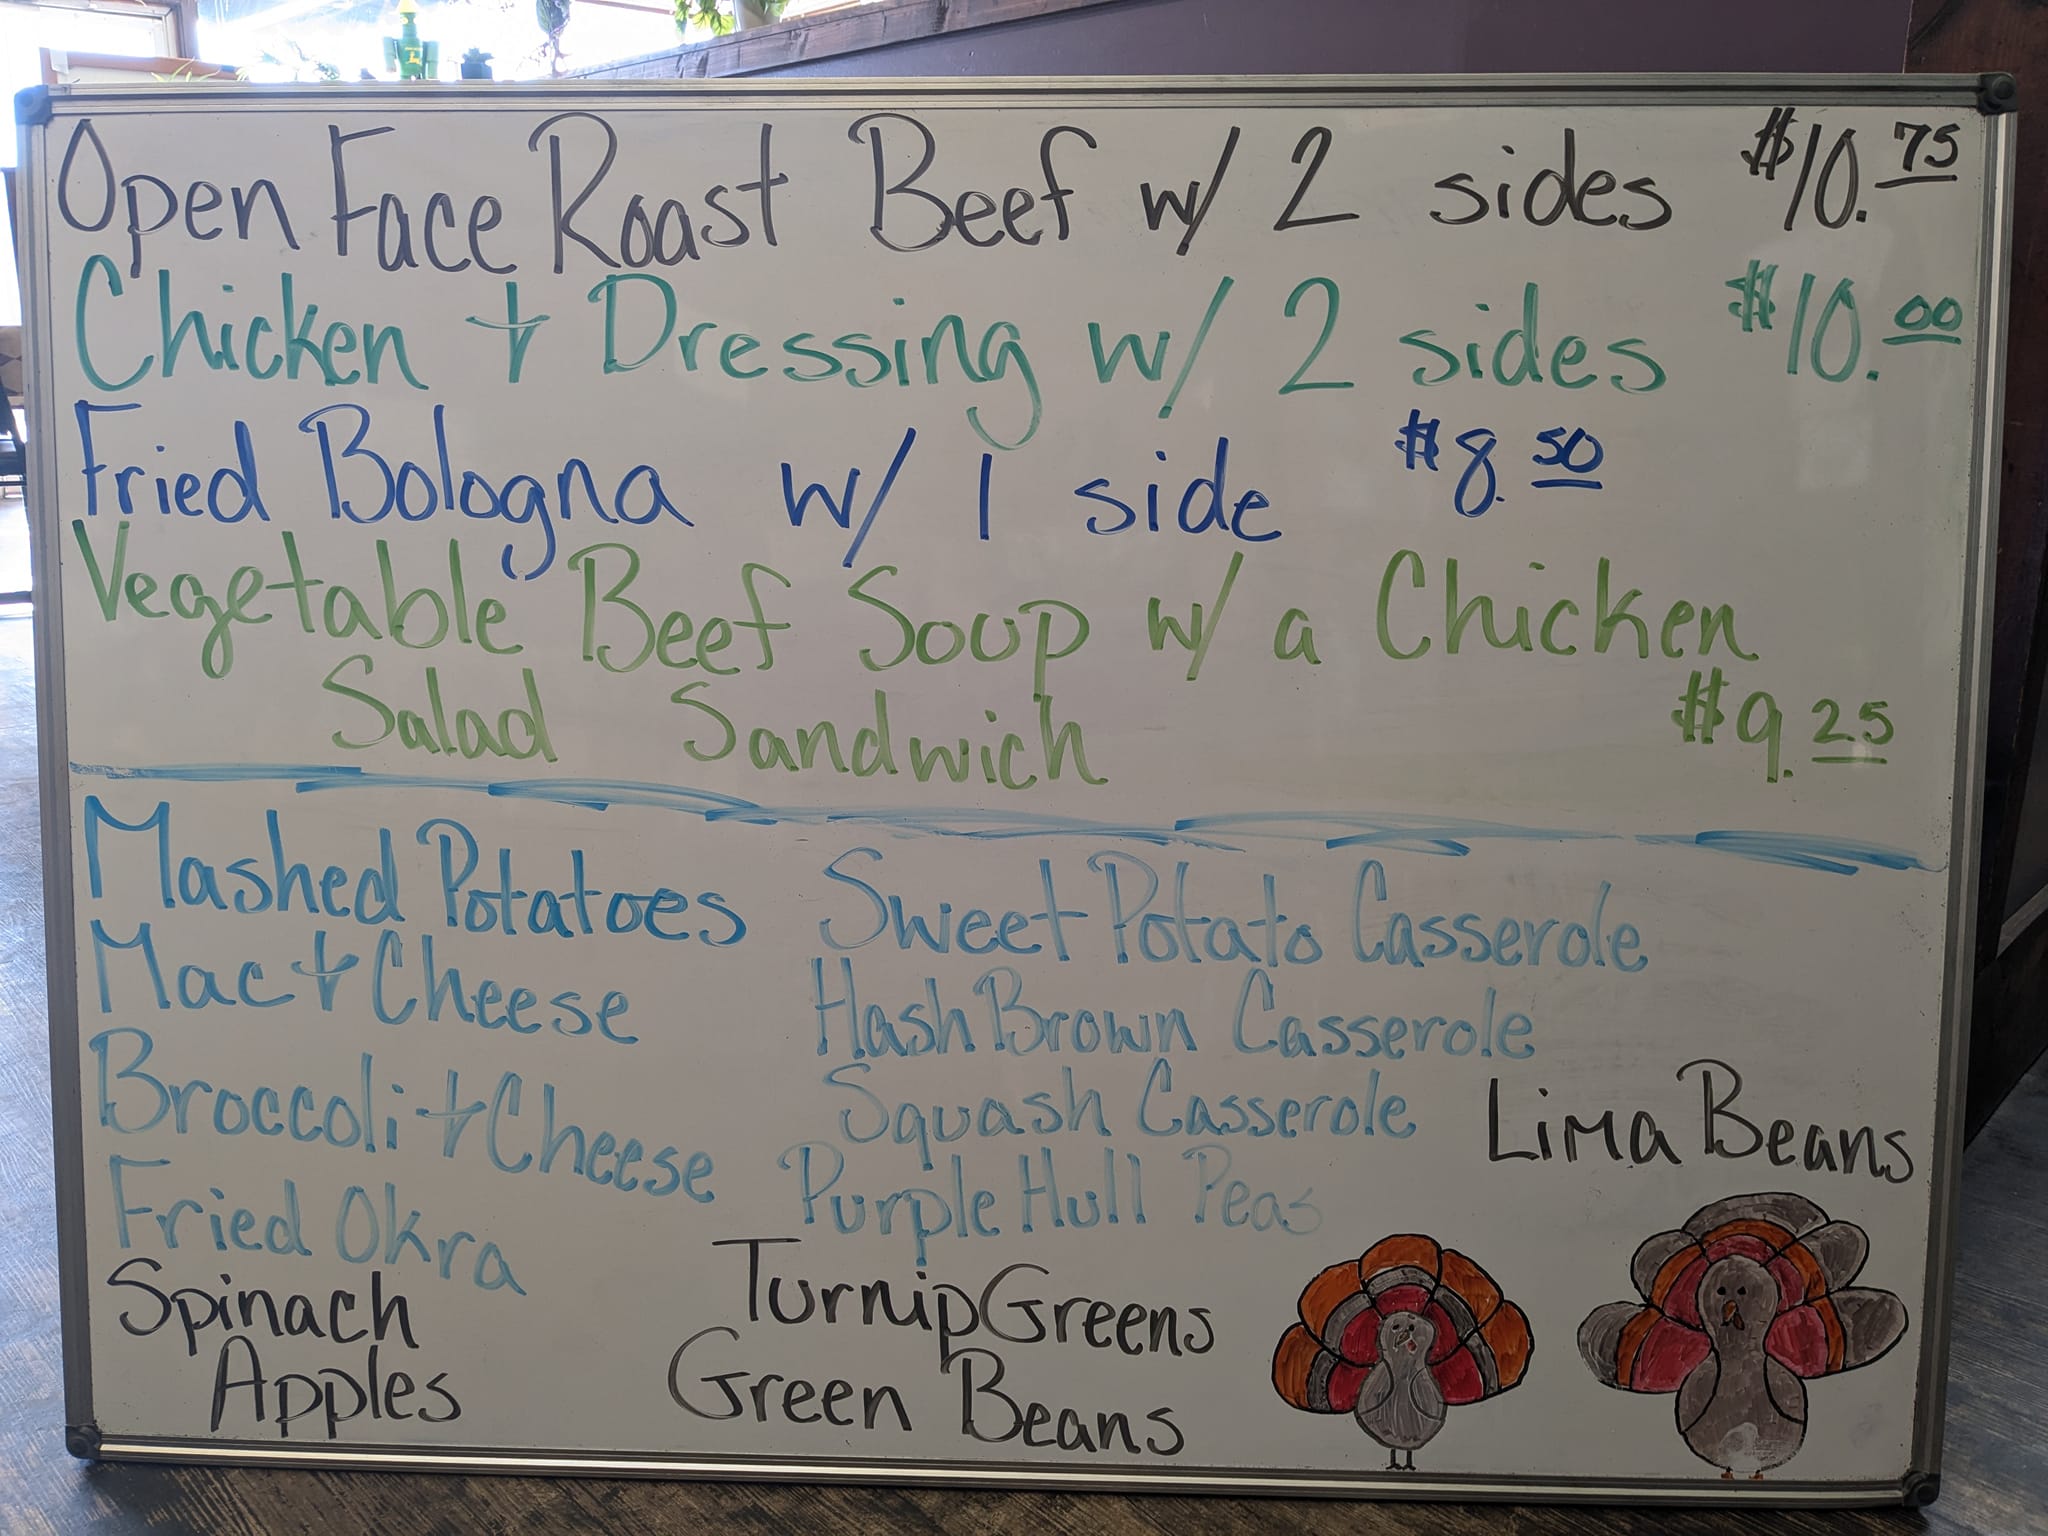 Open Face Roast Beef w/ 2 sides $10.75
Chicken + Dressing w/ 2 sides $10.00
Fried Bologna w/ 1 side $8.50
Vegetable Beef Soup w/ a Chicken
Salad Sandwich $9.25
Mashed Potatoes
Mac + Cheese
Broccoli + Cheese
Fried Okra
Spinach
Apples
Sweet Potato Casserole
Hash Brown Casserole
Squash Casserole
Purple Hull Peas
Turnip Greens
Green Beans
Lima Beans